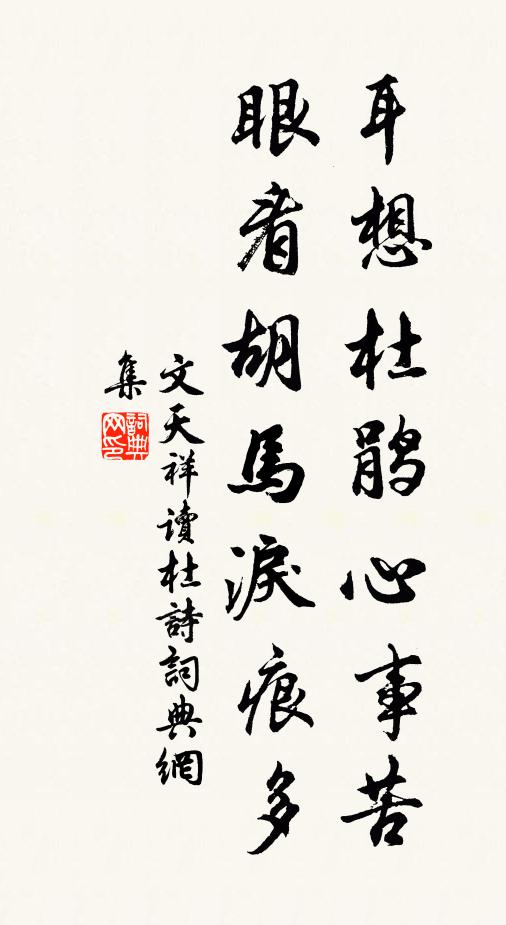 耳想杜鹃心事苦
眼看胡馬淚痕多
文天祥讀杜詩詞典網
集
詞典網印